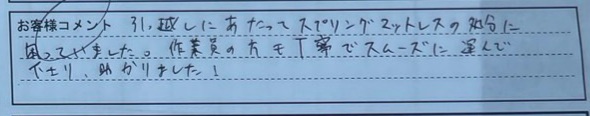 お客様コメント 引越しにあたってスプリングマットレスの処分に
困っていました。作業員の方も丁寧でスムーズに運んで
下さり、助かりました！